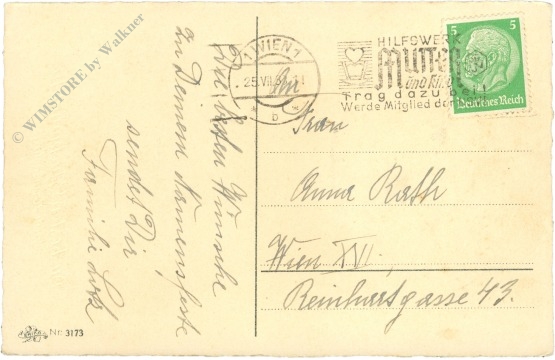 Die besten Wünsche
zu Deinem Namensfeste
sendet Dir
Familie
© WIMSTORE by Walkner
Nr. 3173
1 WIEN 1
25.VII.3
b
HILFSWERK
Mutter
und Kind
Trag dazu bei!
Werde Mitglied der
5 5
Deutsches Reich
An
Frau
Anna Rath
Wien XVI.
Reinhartsgasse 43.